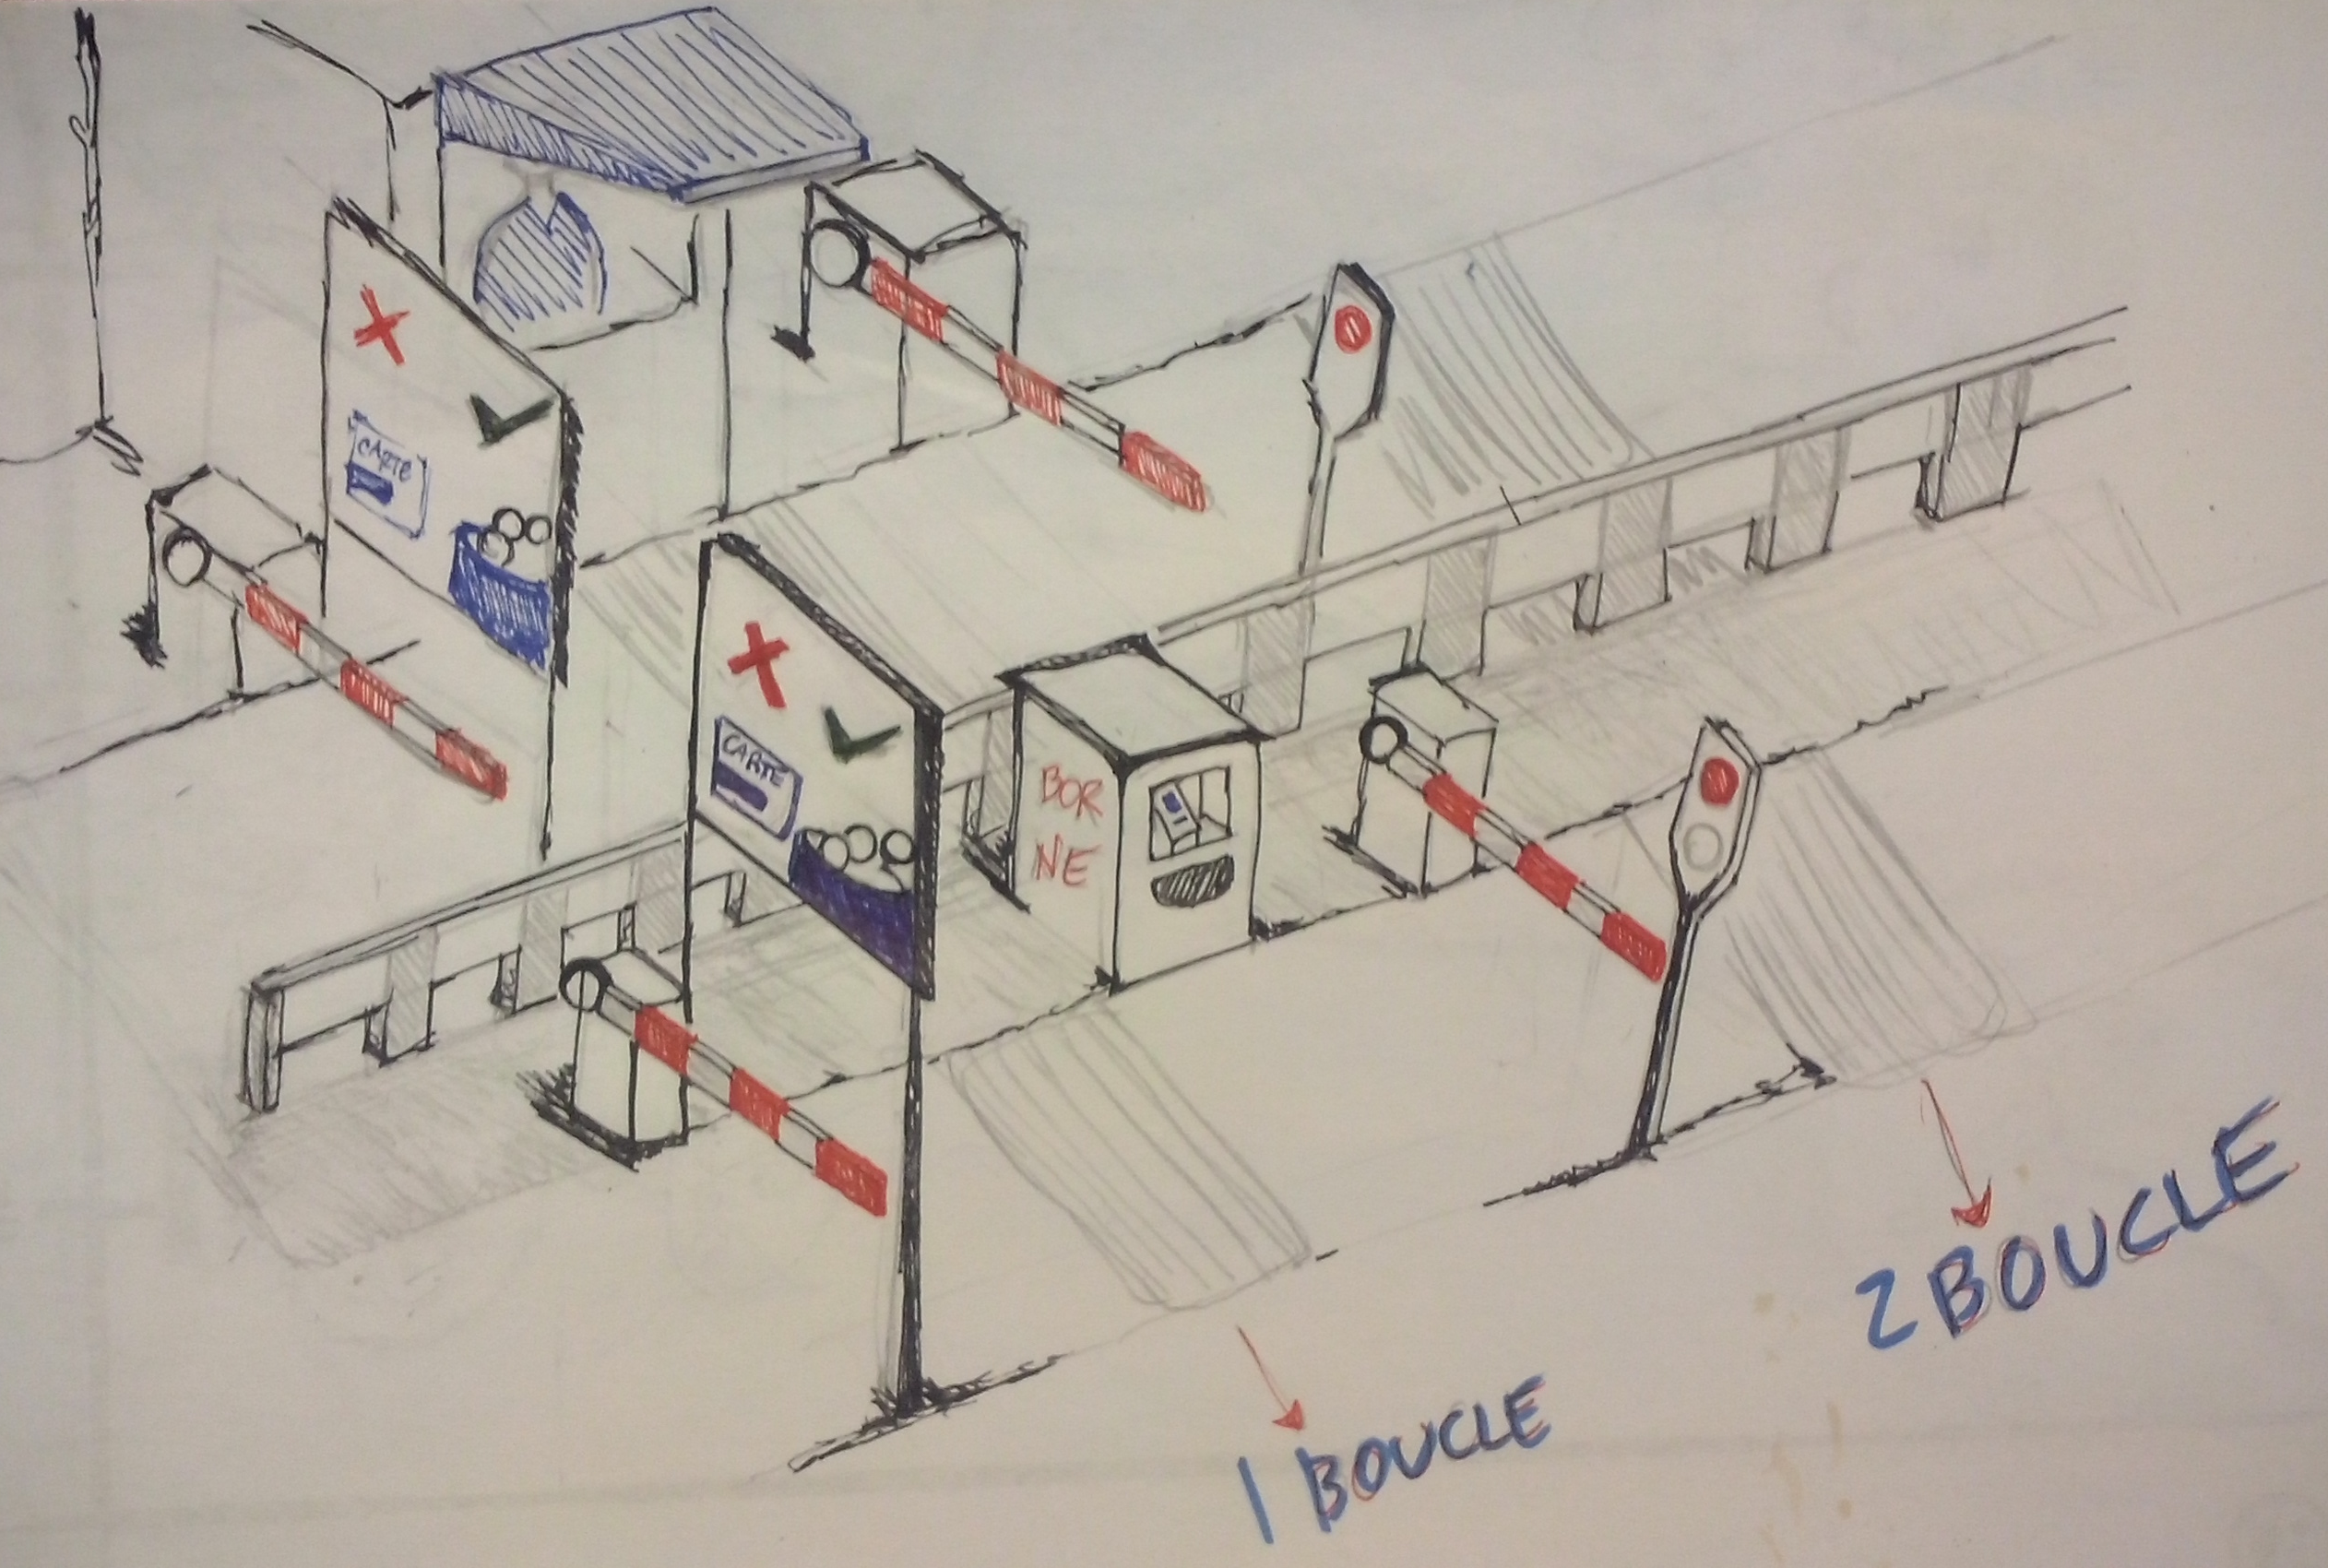 CARTE
CARTE
BOR
NE
1 BOUCLE
2 BOUCLE